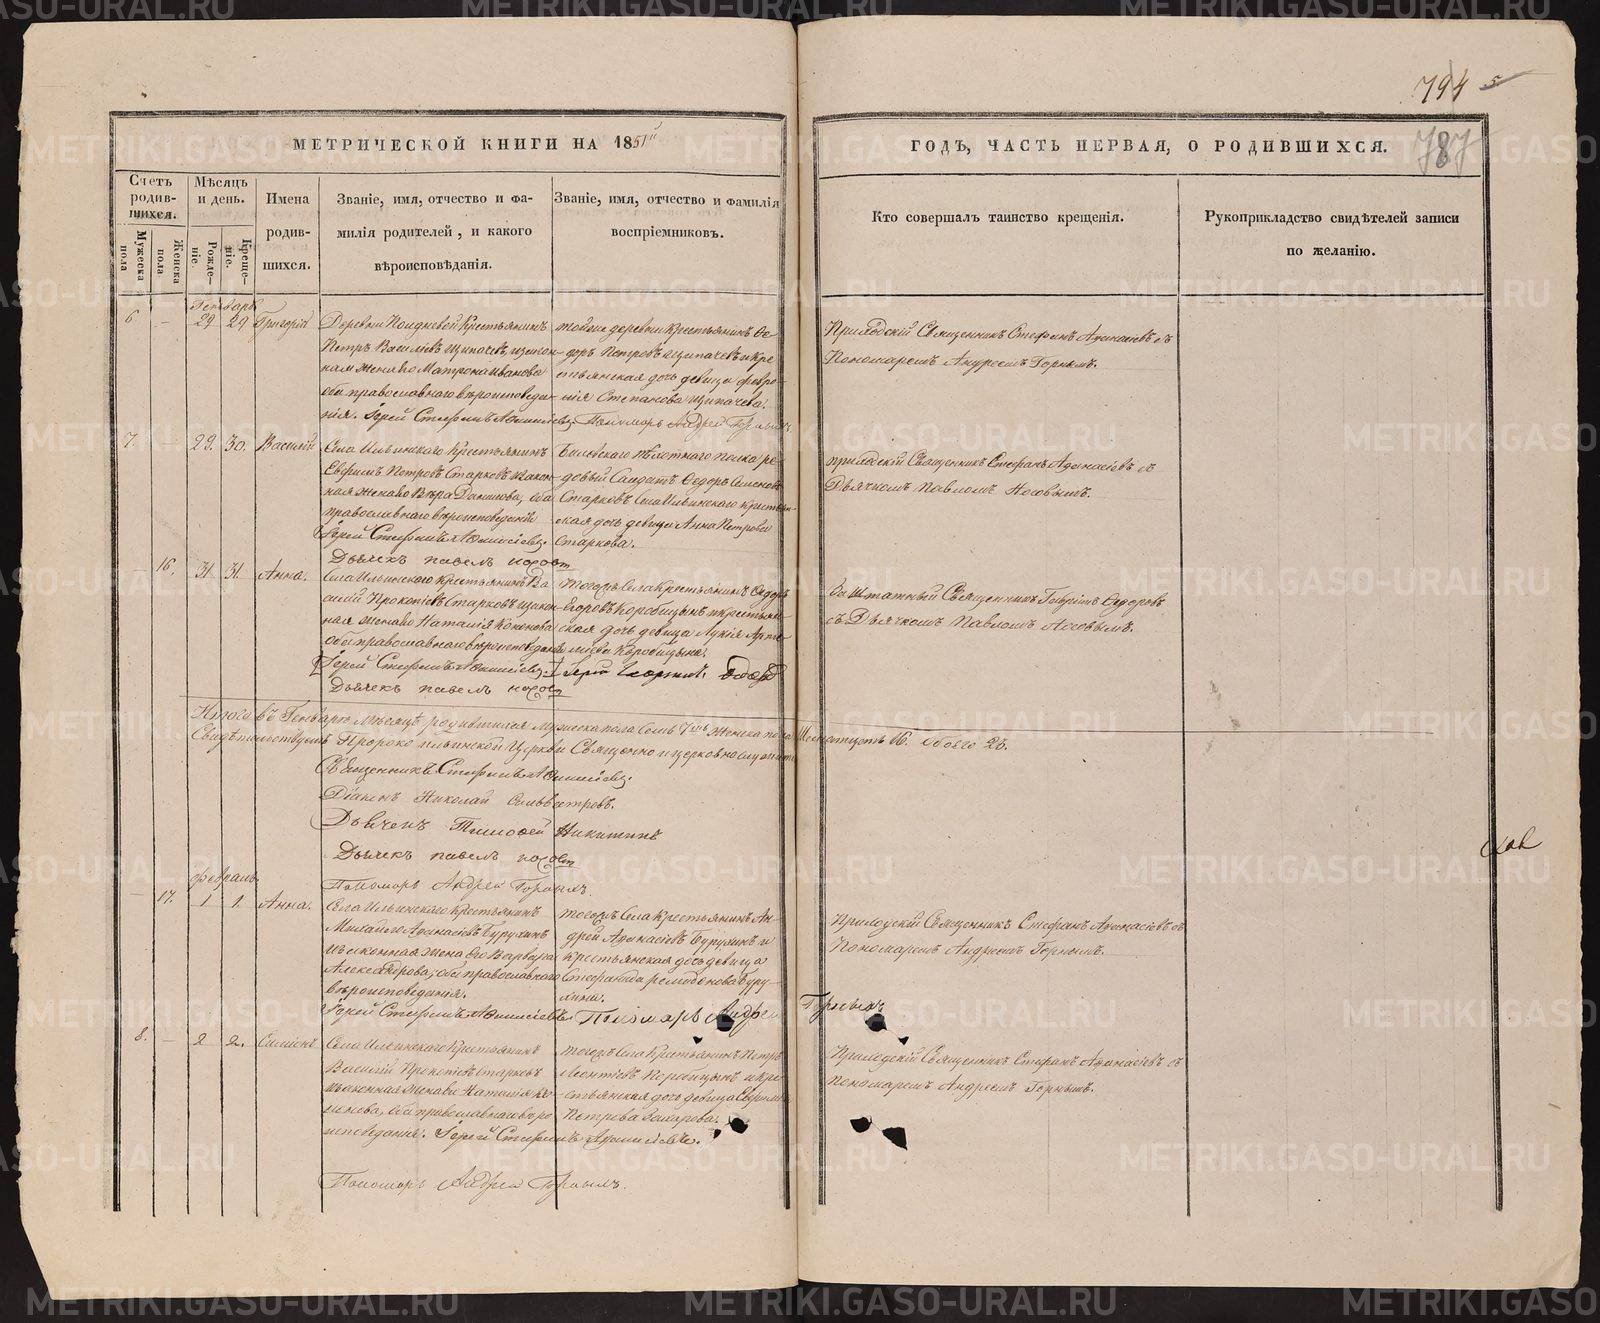 794 5
787
МЕТРИЧЕСКОЙ КНИГИ НА 1851й
ГОДЪ, ЧАСТЬ ПЕРВАЯ, О РОДИВШИХСЯ.
Счетъ родив-шихся.
Мужеска пола
Женска пола
Мѣсяцъ и день.
Рожде-ніе.
Креще-ніе.
Имена родив-шихся.
Званіе, имя, отчество и фа-
милія родителей, и какого
вѣроисповѣданія.
Званіе, имя, отчество и фамилія
воспріемниковъ.
Кто совершалъ таинство крещенія.
Рукоприкладство свидѣтелей записи
по желанію.
Генварь
6 — 29 29 Григорій
Деревни Крестьянинъ
Петръ Васильевъ Щипачевъ, и закон-
ная жена его Матрона Иванова
оба православнаго вѣроисповѣда-
нія. Іерей Стефанъ Афанасіевъ.
тойже деревни Крестьянинъ Ѳе-
доръ Петровъ Щипачевъ и кре-
стьянская дочь девица Февро-
нія Степанова Щипачева.
Пономарь Андрей Горныхъ
Приходскій Священникъ Стефанъ Афанасіевъ съ
Пономаремъ Андреемъ Горнымъ.
7. — 29. 30. Василій
Села Ильинскаго Крестьянинъ
Ефримъ Петровъ Старковъ и закон-
ная жена его Вѣра Данилова, оба
православнаго вѣроисповѣданія
Іерей Стефанъ Афанасіевъ.
Дьячекъ павелъ носовъ
пѣхотнаго полка ря-
довый Солдатъ Ѳедоръ Семеновъ
Старковъ Села Ильинскаго крестьян-
ская дочь девица Анна Петрова
Старкова.
приходскій Священникъ Стефанъ Афанасіевъ съ
Дьячкомъ Павломъ Носовымъ.
— 16. 31. 31. Анна.
Села Ильинскаго крестьянинъ Ва-
силій Прокопіевъ Старковъ и закон-
ная жена его Наталія Кононова
оба православнаго вѣроисповѣданія
Іерей Стефанъ Афанасіевъ.
Дьячекъ павелъ носовъ
тогожъ Села Крестьянинъ Ѳедоръ
Егоровъ Коробицынъ и крестьян-
ская дочь девица Лукія
Коробицына.
Заштатный Священникъ Ѳедоровъ
съ Дьячкомъ Павломъ Носовымъ.
Итого въ Генварѣ мѣсяцѣ родившихся Мужеска пола Семь 7мь Женска пола Шестнатцать 16. Обоего 23.
Свидѣтельствуемъ Пророко-Ильинской Церкви Священно и церковнослужители
Священникъ Стефанъ Афанасіевъ.
Діаконъ Николай Сильвестровъ.
Дьячекъ Тимофей Никитинъ
Дьячекъ павелъ носовъ
Пономарь Андрей Горныхъ
февраль.
— 17. 1 1. Анна.
Села Ильинскаго Крестьянинъ
Михайло Афанасіевъ Бурухинъ
и законная жена его Варвара
Александрова; оба православнаго
вѣроисповѣданія.
Іерей Стефанъ Афанасіевъ.
тогожъ Села Крестьянинъ Ан-
дрей Афанасіевъ Бурухинъ и
крестьянская дочь девица
Стефанида Буру-
хина.
Пономарь Андрей Горныхъ
Приходскій Священникъ Стефанъ Афанасіевъ съ
Пономаремъ Андреемъ Горнымъ.
8. — 2 2. Симіонъ
Села Ильинскаго Крестьянинъ
Василій Прокопіевъ Старковъ
и законная жена его Наталія Ко-
нонова, оба православнаго вѣро
исповѣданія. Іерей Стефанъ Афанасіевъ.
Пономарь Андрей Горныхъ.
тогожъ Села Крестьянинъ Петръ
Леонтіевъ Коробицынъ и кре-
стьянская дочь девица
Петрова Захарова.
Приходскій Священникъ Стефанъ Афанасіевъ съ
пономаремъ Андреемъ Горнымъ.
METRIKI.GASO-URAL.RU